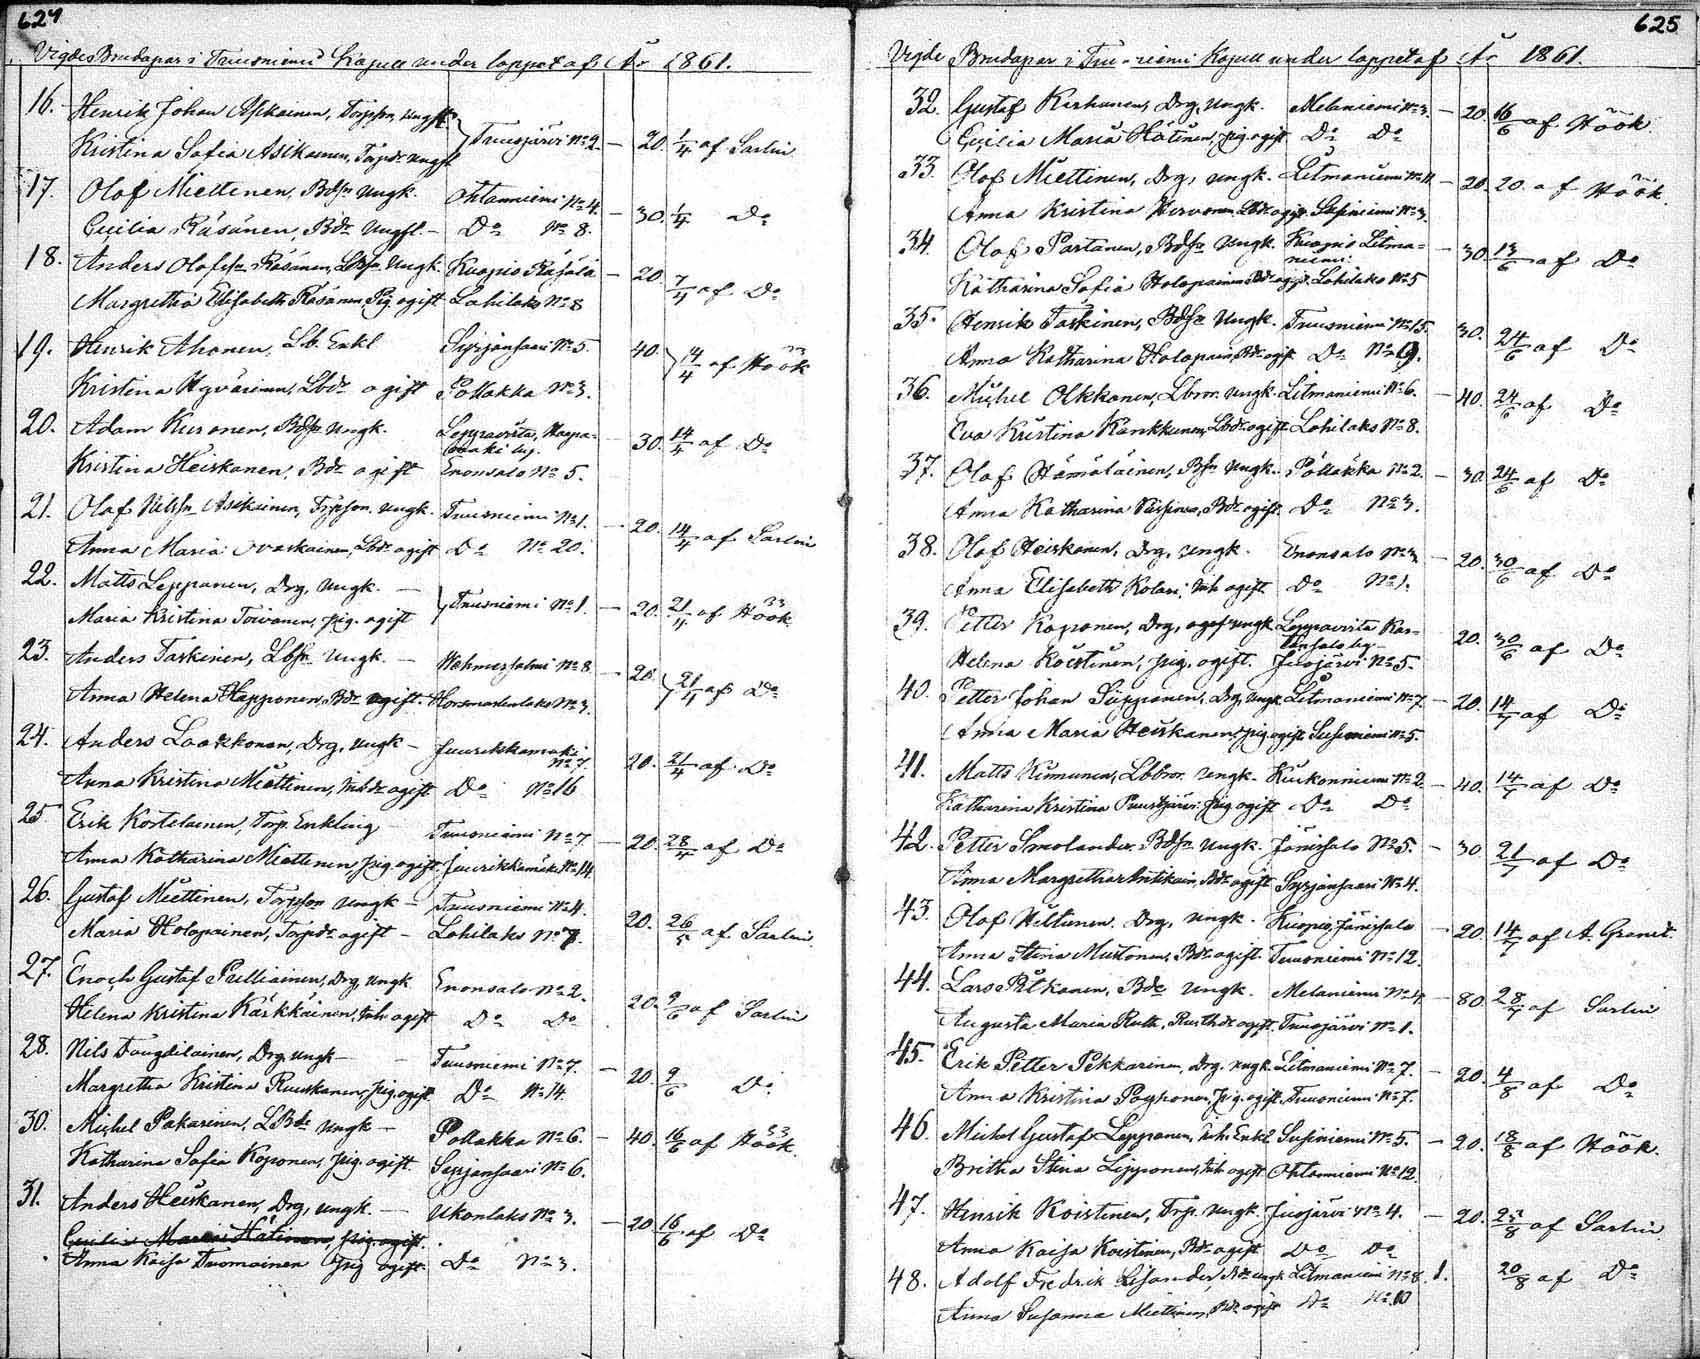 624
Vigde Brudapar i Tuusniemi Kapell under loppet af År 1861.
16. Henrik Johan Asikainen, Torpson, ungk. Tuusjärvi No 2. — 20. 1/4 af Sarlin
Kristina Sofia Asikainen, Torpdr ungfl
17. Olof Miettinen, Bdsn ungk. Ohtaniemi No 4. — 30. 1/4 Do
Cecilia Räsänen, Bdr Ungfl. — Do No 8.
18. Anders Olofsn Räsänen, Lbsn Ungk. Kuopio Räsälä — 20. 7/4 af Do
Margretha Elisabeth Räsänen Pig. ogift Lahilaks No 8
19. Henrik Ahonen, Lb. Enkl Syrjänsaari No 5. 40. 14/4 af Höök
Kristina Hyvärinen, Lbdr ogift Pollakka No 3.
20. Adam Kuronen, Bdsn Ungk. Leppävirta, — 30. 14/4 af Do
Kristina Heiskanen, Bdr ogift Enonsalo No 5.
21. Olof Nilssn Asikainen, Torpson. ungk. Tuusniemi No 1. — 20. 14/4 af Sarlin
Anna Maria Ovaskainen, Lbdr ogift Do No 20.
22. Matts Leppänen, Drg, Ungk. — Tuusniemi No 1. — 20. 21/4 af Höök
Maria Kristina Toivanen, pig. ogift
23. Anders Taskinen, Lbsn Ungk. — Wehmersalmi No 8. — 20. 21/4 af Do
Anna Helena Happonen, Bdr ogift. Horsmanlaks No 3.
24. Anders Laakkonen, Drg, Ungk — Juurikkamäki No 7. 20. 21/4 af Do
Anna Kristina Miettinen, Inhdr ogift Do No 16
25 Erik Kortelainen, Torp. Enkling Tuusniemi No 7 — 20. 28/4 af Do
Anna Katharina Miettinen pig. ogift. Juurikkamäki No 14.
26. Gustaf Miettinen, Torpson Ungk — Tuusniemi No 4. 20. 26/5 af Sarlin.
Maria Holopainen, Torpdr ogift — Lahilaks No 7.
27. Enoch Gustaf Pulliainen, Drg, Ungk Enonsalo No 2. 20. 9/6 af Sarlin
Helena Kristina Kärkkäinen, Inh. ogift Do Do
28. Nils Taugdilainen, Drg, Ungk — Tuusniemi No 7. — 20 9/6 Do
Margretha Kristina Ruuskanen, pig. ogift. Do No 14.
30. Michel Pakarinen, LBdr Ungk — Pollakka No 6. — 40. 16/6 af Höök.
Katharina Sofia Koponen, pig. ogift. Syrjänsaari No 6.
31. Anders Heiskanen, Drg, ungk. — Ukonlaks No 3. — 20 16/6 af Do
Cecilia Maria Hätinen, pig. ogift.
Anna Kaisa Tuomainen Pig ogift. Do No 3.
625
Vigde Brudapar i Tuusniemi Kapell under loppet af År 1861.
32. Gustaf Karhunen, Drg, Ungk. Melaniemi No 3. — 20. 16/6 af Höök
Cecilia Maria Hätinen, pig. ogift Do Do
33. Olof Miettinen, Drg, ungk. Litmaniemi No 11 — 20. 20. af Höök.
Anna Kristina Hirvonen, Lbdr ogift. Susiniemi No 3.
34. Olof Partanen, Bdsn Ungk. Kuopio Litmaniemi — 30. 13/6 af Do
Katharina Sofia Holopainen Bdr ogift. Lahilaks No 5
35. Henrik Taskinen, Bdsn Ungk. Tuusniemi No 15. 30. 24/6 af Do
Anna Katharina Holopain, Bdr ogift Do No 19.
36. Michel Olkkonen, Lbror. ungk. Litmaniemi No 6. — 40. 24/6 af Do
Eva Kristina Kankkunen, Lbdr ogift Lahilaks No 8.
37. Olof Hämäläinen, Bsn Ungk. Pollakka No 2. — 30. 24/6 af Do
Anna Katharina, Bdr ogift. Do No 3.
38. Olof Heiskanen, Drg, Ungk. Enonsalo No 3. — 20. 30/6 af Do
Anna Elisabeth Kolari, Inh ogift Do No 1.
39. Petter Koponen, Drg, ungk Leppävirta 20. 30/6 af Do
Helena Koistinen, pig. ogift. Juojärvi No 5.
40. Petter Johan Sapponen, Drg, ungk Litmaniemi No 7 — 20. 14/7 af Do
Anna Maria Heiskanen, pig. ogift. Susiniemi No 5.
41. Matts Kinnunen, Lbbror. Ungk. Kiukonniemi No 2. — 40. 14/7 af Do
Katharina Kristina Puustjärvi, pig ogift Do Do
42. Petter Smolander. Bdsn Ungk. Jänissalo No 5. — 30 21/7 af Do
Anna Margretha Antikain, Bdr ogift Syrjänsaari No 4.
43. Olof Hiltunen, Drg, ungk. Kuopio, Jänissalo — 20. 14/7 af A. Granit.
Anna Stina Mustonen, Bdr ogift. Tuusniemi No 12.
44. Lars Pitkanen, Bde Ungk. Melaniemi No 4 — 80. 28/7 af Sarlin
Augusta Maria Ruth, Rusthdr ogift. Tuusjärvi No 1.
45. Erik Petter Pekkarinen, Drg, ungk. Litmaniemi No 7. — 20. 4/8 af Do
Anna Kristina Poyhonen, pig. ogift. Tuusniemi No 7.
46. Michel Gustaf Leppanen, Inh. Enkl Susiniemi No 5. — 20. 18/8 af Höök.
Britha Stina Lipponen, Inh ogift Ohtaniemi No 12.
47. Henrik Koistinen, Trp. Ungk. Juojärvi No 4. — 20. 25/8 af Sarlin
Anna Kaisa Koistinen, Bdr ogift Do Do
48. Adolf Fredrik Lisander, ungk Litmaniemi No 8 1. 20/8 af Do
Anna Susanna Miettinen, Bdr ogift Do No 10